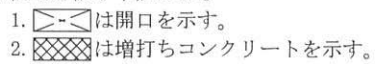 1. は開口を示す。
2. は増打ちコンクリートを示す。